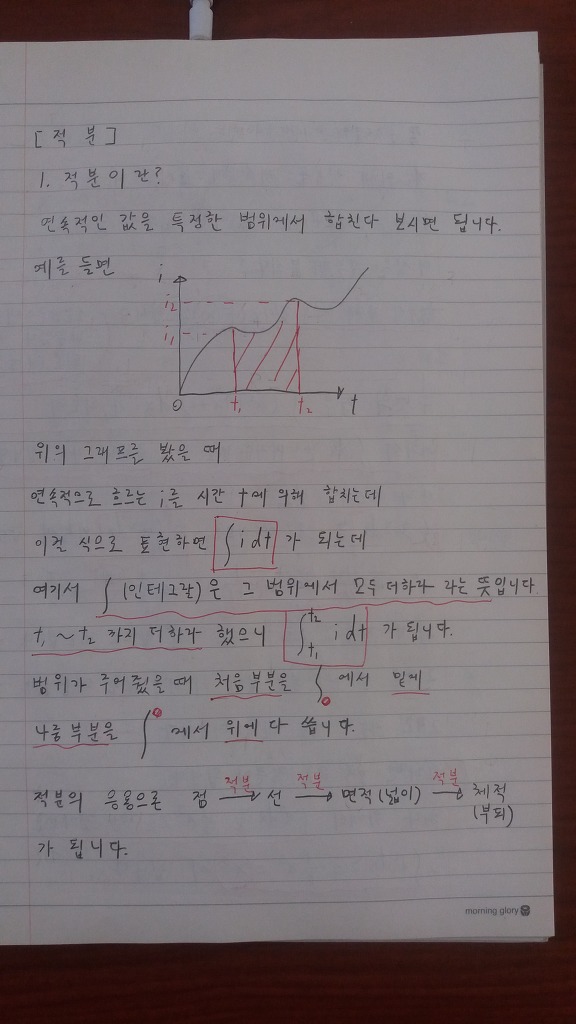 [적 분]
1. 적분이란?
연속적인 값을 특정한 범위에서 합친다 보시면 됩니다.
예를 들면
i
i₂
i₁
0
t₁
t₂
t
위의 그래프를 봤을 때
연속적으로 흐르는 i를 시간 t에 의해 합치는데
이걸 식으로 표현하면 ∫ i dt 가 되는데
여기서 ∫ (인테그랄)은 그 범위에서 모두 더하라 라는 뜻입니다.
t₁ ~ t₂ 까지 더하라 했으니 ∫_{t₁}^{t₂} i dt 가 됩니다.
범위가 주어줬을 때 처음부분을 ∫ 에서 밑에
나중부분을 ∫ 에서 위에 다 씁니다.
적분의 응용으론 점 적분→ 선 적분→ 면적(넓이) 적분→ 체적
(부피)
가 됩니다.
morning glory